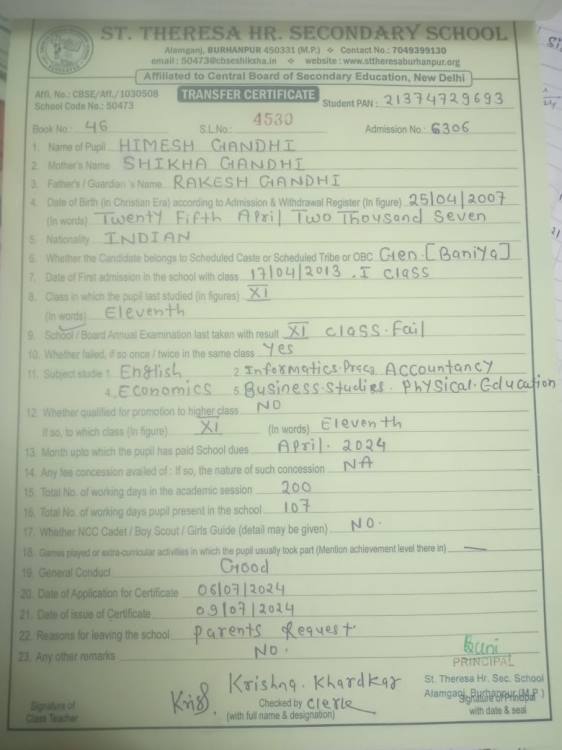 ST. THERESA HR. SECONDARY SCHOOL
Alamganj, BURHANPUR 450331 (M.P.) ❖ Contact No.: 7049399130
email : 50473@cbseshiksha.in ❖ website : www.sttheresaburhanpur.org
Affiliated to Central Board of Secondary Education, New Delhi
Affi. No.: CBSE/Aff./1030508
School Code No.: 50473
TRANSFER CERTIFICATE
Student PAN : 21374729693
Book No.: 46 S.L.No.: 4530 Admission No.: 6306
1. Name of Pupil HIMESH GANDHI
2. Mother's Name SHIKHA GANDHI
3. Father's / Guardian's Name RAKESH GANDHI
4. Date of Birth (in Christian Era) according to Admission & Withdrawal Register (In figure) 25/04/2007
(In words) Twenty Fifth April Two Thousand Seven
5. Nationality INDIAN
6. Whether the Candidate belongs to Scheduled Caste or Scheduled Tribe or OBC Gen [Baniya]
7. Date of First admission in the school with class 17/04/2013. I class
8. Class in which the pupil last studied (in figures) XI
(In words) Eleventh
9. School / Board Annual Examination last taken with result XI class. Fail
10. Whether failed, if so once / twice in the same class Yes
11. Subject studie 1. English 2. Informatics. Prac3. Accountancy
4. Economics 5. Business studies. Physical. Education
12. Whether qualified for promotion to higher class NO
If so, to which class (In figure) XI (In words) Eleventh
13. Month upto which the pupil has paid School dues April. 2024
14. Any fee concession availed of : If so, the nature of such concession NA
15. Total No. of working days in the academic session 200
16. Total No. of working days pupil present in the school 107
17. Whether NCC Cadet / Boy Scout / Girls Guide (detail may be given) NO.
18. Games played or extra-curricular activities in which the pupil usually took part (Mention achievement level there in) —
19. General Conduct Good
20. Date of Application for Certificate 06/07/2024
21. Date of issue of Certificate 09/07/2024
22. Reasons for leaving the school parents Request
23. Any other remarks NO.
PRINCIPAL
St. Theresa Hr. Sec. School
Alamganj, Burhanpur (M.P.)
Signature of Principal
with date & seal
Krishna. Khardkar
Checked by clerk
(with full name & designation)
Signature of
Class Teacher